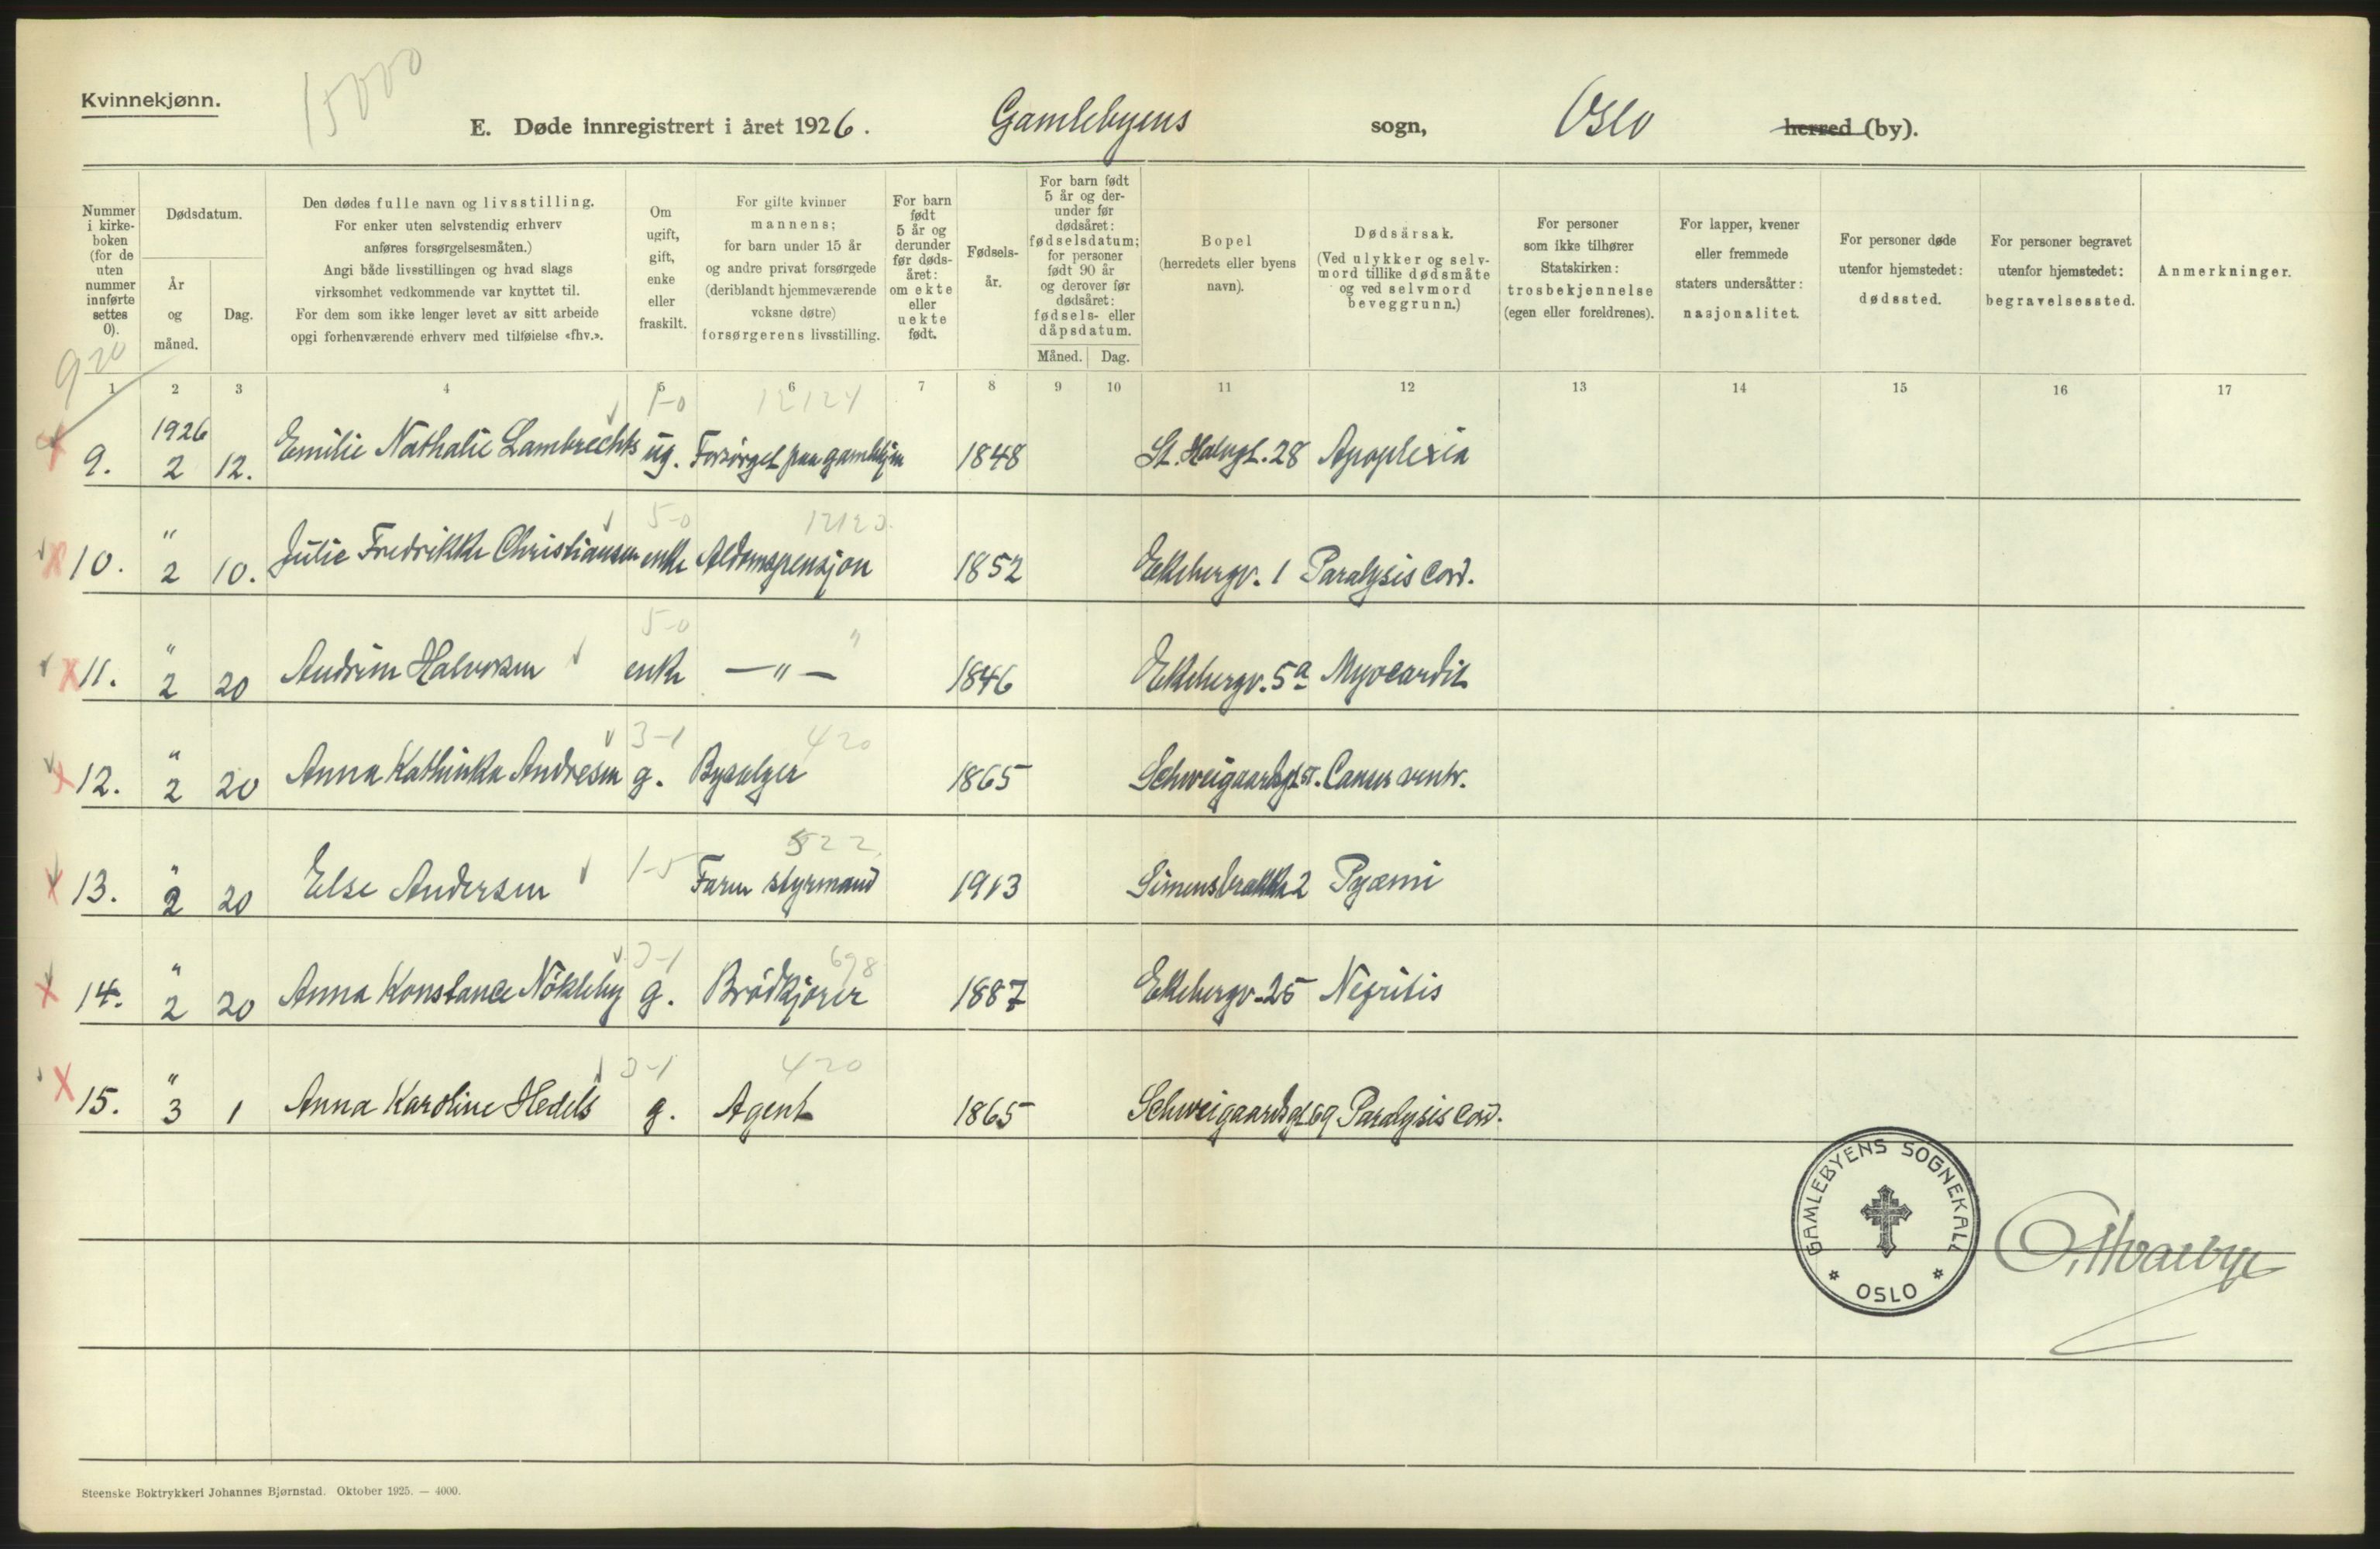 Kvinnekjønn.
15000
E. Døde innregistrert i året 1926. Gamlebyens sogn, Oslo herred (by).
Nummer i kirke-boken (for de uten nummer innførte settes 0).
Dødsdatum.
År og måned.
Dag.
Den dødes fulle navn og livsstilling.
For enker uten selvstendig erhverv
anføres forsørgelsesmåten.)
Angi både livsstillingen og hvad slags
virksomhet vedkommende var knyttet til.
For dem som ikke lenger levet av sitt arbeide
opgi forhenværende erhverv med tilføielse «fhv.».
Om ugift, gift, enke eller fraskilt.
For gifte kvinner
mannens;
for barn under 15 år
og andre privat forsørgede
(deriblandt hjemmeværende
voksne døtre)
forsørgerens livsstilling.
For barn født 5 år og derunder før døds-året: om ekte eller uekte født.
Fødsels-år.
For barn født 5 år og der-under før dødsåret: fødselsdatum; for personer født 90 år og derover før dødsåret: fødsels- eller dåpsdatum.
Måned. Dag.
Bopel
(herredets eller byens
navn).
Dødsårsak.
(Ved ulykker og selv-
mord tillike dødsmåte
og ved selvmord
beveggrunn.)
For personer
som ikke tilhører
Statskirken:
trosbekjennelse
(egen eller foreldrenes).
For lapper, kvener
eller fremmede
staters undersåtter:
nasjonalitet.
For personer døde
utenfor hjemstedet:
dødssted.
For personer begravet
utenfor hjemstedet:
begravelsessted.
Anmerkninger.
920
1 2 3 4 5 6 7 8 9 10 11 12 13 14 15 16 17
1-0 12124
9. 1926 2 12. Emilie Nathalie Lambrechts ug. Forsörget paa gamlehjem 1848 St. Halvgt. 28 Apoplexia
5-0 12120
10. " 2 10. Julie Fredrikke Christiansen enke Aldomspensjon 1852 Ekebergv. 1 Paralysis cord.
5-0 "
11. " 2 20 Andrine Halvorsen enke — " — 1846 Ekebergv. 5a Myocardit
3-1 420
12. " 2 20 Anna Kathinka Andresen g. Bysælger 1865 Schweigaardsgt. Cancer ventr.
1-5 522
13. " 2 20 Else Andersen Faren styrmand 1913 Simensbrakke 2 Pyæmi
3-1 698
14. " 2 20 Anna Konstance Nökleby g. Brödkjörer 1887 Ekebergv. 25 Nefritis
3-1 420
15. " 3 1 Anna Karoline Hedels g. Agent 1865 Schweigaardsgt 69 Paralysis cord.
GAMLEBYENS SOGNEKALL
OSLO
Steenske Boktrykkeri Johannes Bjørnstad. Oktober 1925. — 4000.